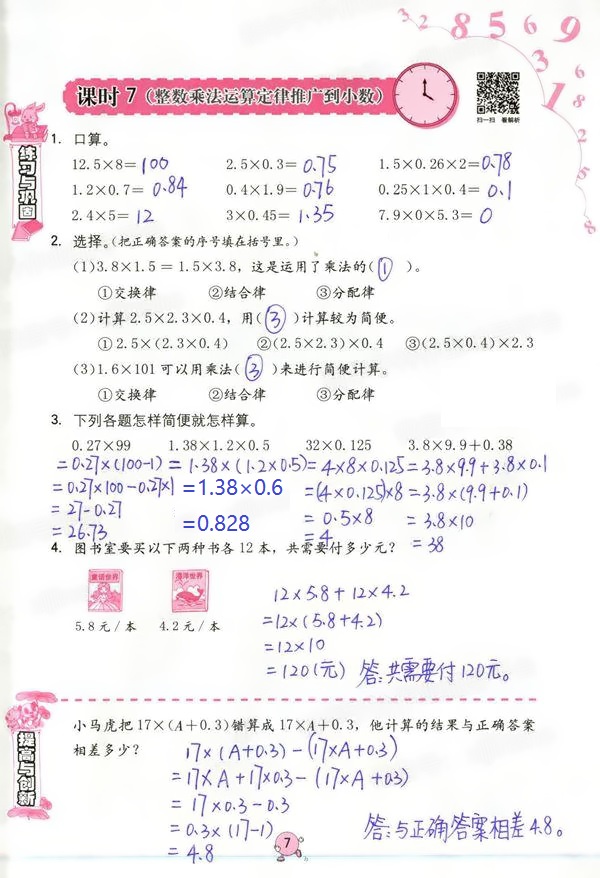 3 2 8 5 6 9 3 1 6 8 2 5 8
课时 7 (整数乘法运算定律推广到小数)
扫一扫 看解析
练习与巩固
1. 口算。
12.5×8=100 2.5×0.3=0.75 1.5×0.26×2=0.78
1.2×0.7=0.84 0.4×1.9=0.76 0.25×1×0.4=0.1
2.4×5=12 3×0.45=1.35 7.9×0×5.3=0
2. 选择。(把正确答案的序号填在括号里。)
(1)3.8×1.5=1.5×3.8，这是运用了乘法的(①)。
①交换律 ②结合律 ③分配律
(2)计算2.5×2.3×0.4，用(③)计算较为简便。
①2.5×(2.3×0.4) ②(2.5×2.3)×0.4 ③(2.5×0.4)×2.3
(3)1.6×101可以用乘法(③)来进行简便计算。
①交换律 ②结合律 ③分配律
3. 下列各题怎样简便就怎样算。
0.27×99 1.38×1.2×0.5 32×0.125 3.8×9.9+0.38
=0.27×(100-1) =1.38×(1.2×0.5) =4×8×0.125 =3.8×9.9+3.8×0.1
=0.27×100-0.27×1 =1.38×0.6 =(4×0.125)×8 =3.8×(9.9+0.1)
=27-0.27 =0.828 =0.5×8 =3.8×10
=26.73 =4 =38
4. 图书室要买以下两种书各12本，共需要付多少元？
童话世界 海洋世界
5.8元/本 4.2元/本
12×5.8+12×4.2
=12×(5.8+4.2)
=12×10
=120(元) 答:共需要付120元。
提高与创新
小马虎把17×(A+0.3)错算成17×A+0.3，他计算的结果与正确答案
相差多少？
17×(A+0.3)-(17×A+0.3)
=17×A+17×0.3-(17×A+0.3)
=17×0.3-0.3
=0.3×(17-1)
=4.8
答:与正确答案相差4.8。
7